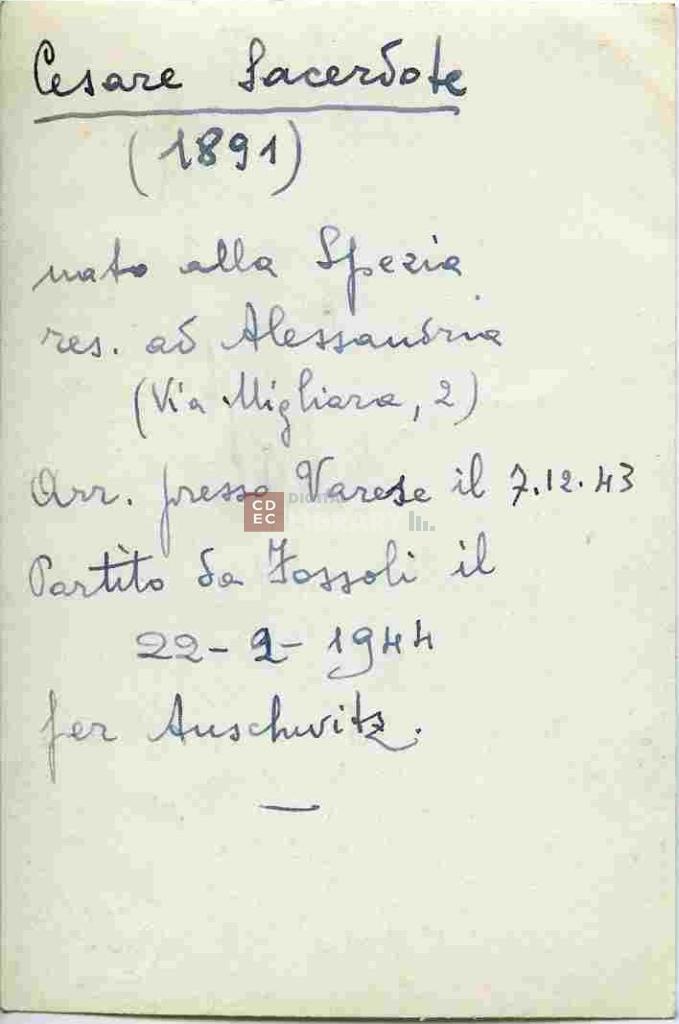 Cesare Sacerdote
(1891)
nato alla Spezia
res. ad Alessandria
(Via Migliara, 2)
Arr. presso Varese il 7.12.43
CD
EC
DIGITAL
LIBRARY
Partito da Fossoli il
22-2-1944
per Auschwitz.